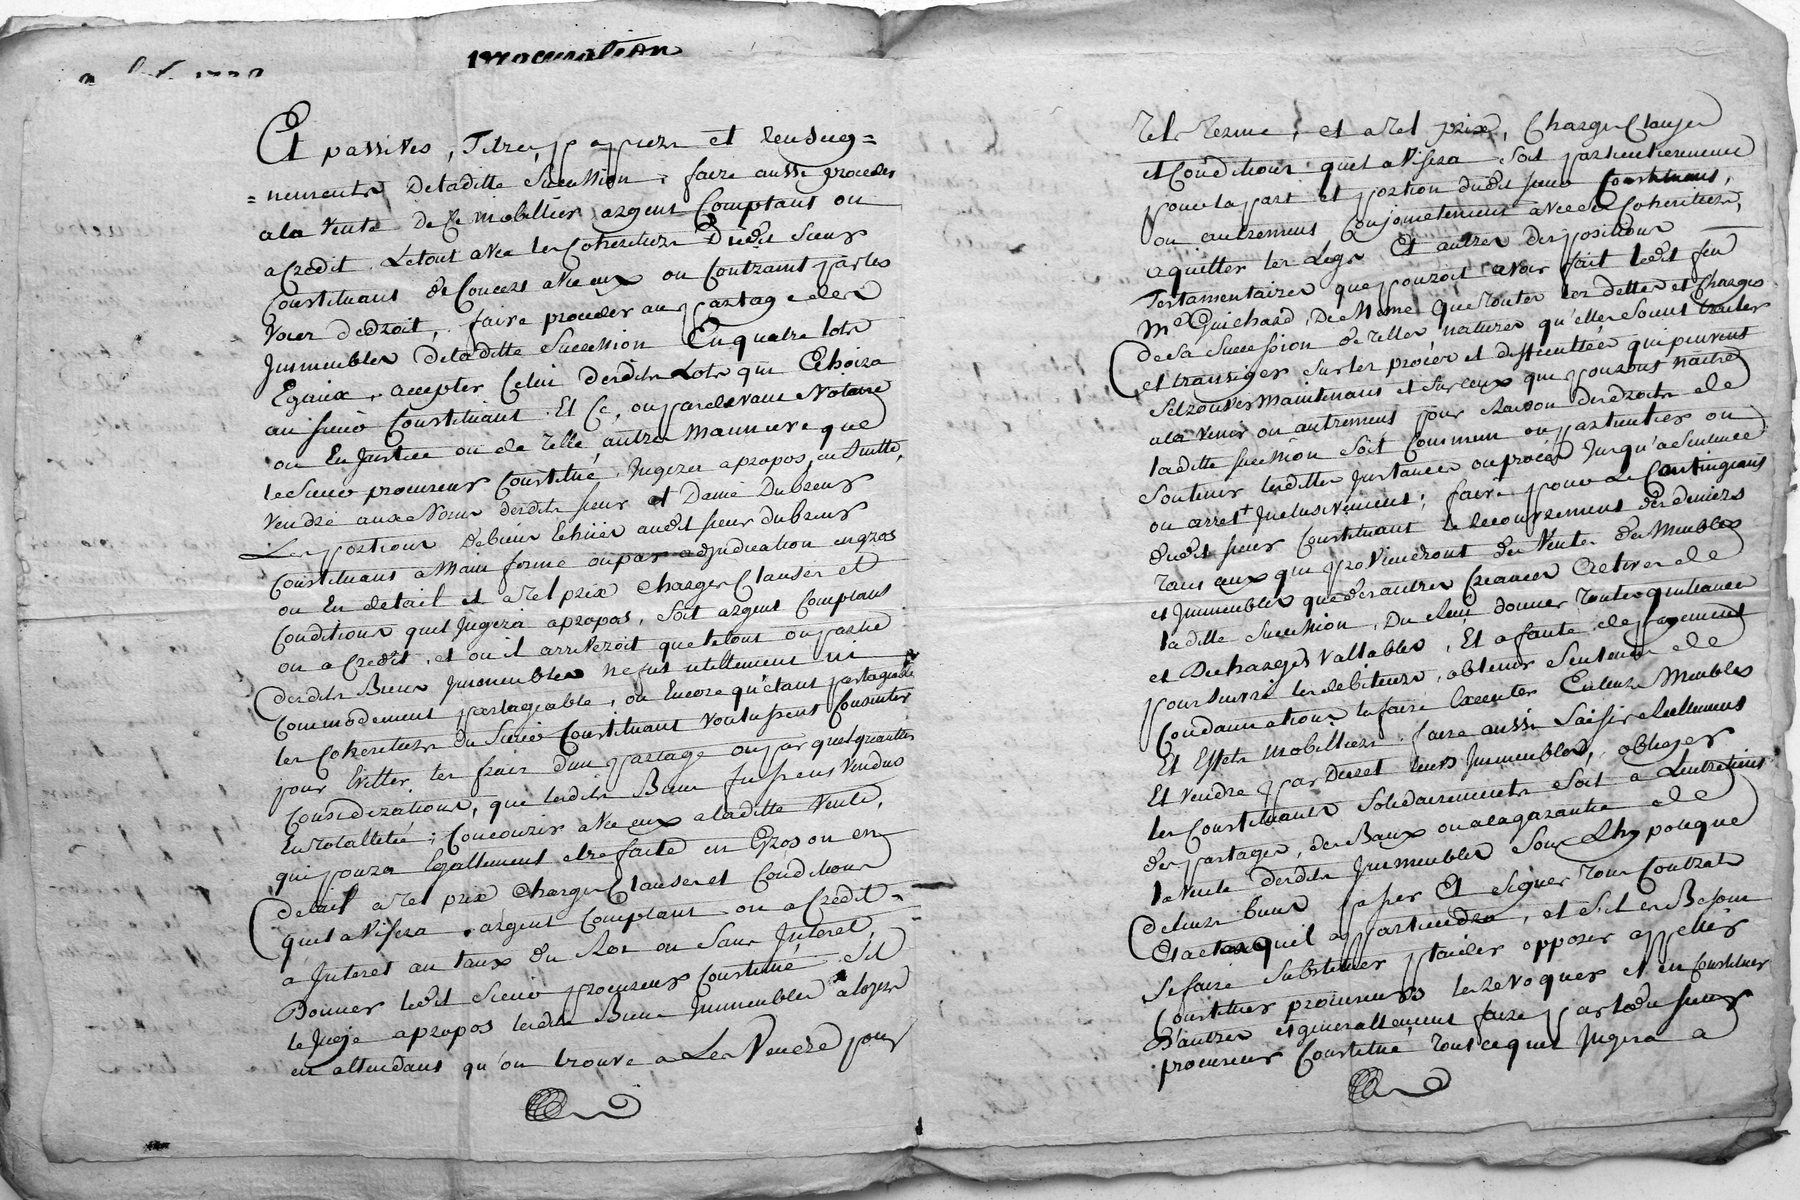 procuration
Et passives, Titres, papiers et renseig=
=nements deladitte Succession, faire aussi proceder
ala Vente de Ce mobillier argent Comptant ou
acredit. Letout avec les Coheritiers dudit Sieur
Constituant de Concert avec eux ou Contraint par les
Voies dedroit, faire proceder au partage des
Immeubles deladitte Succession En quatre lots
Egaux, accepter Celui desdits Lots qui Echoira
au sieur Constituant. Et Ce, ou pardevant Notaire
ou En Justice ou de telle autre Manniere que
le Sieur procureur Constitué Jugera apropos, en Suitte,
Vendre auxe Noms desdits sieur et Dame Dubreur
Les portions desbiens Echües audit sieur dubreur
Constituant a Main ferme ou par adjudication engros
ou En detail et atel prix Charges Clauses et
Conditions quil Jugera apropos, Soit argent Comptant
ou acredit, et ou il arriveroit que letout ou partie
desdits Biens Immeubles ne fut utillement ni
Commodement partageable, ou Encore qu'etant partageable
les Coheritiers du Sieur Constituant voulussent Consentir
pour Eviter les frais d'un partage ou par quelquautres
Considerations, que lesdits Biens fussent Vendus
En totallitée; Concourir avec eux aladitte Vente,
qui poura Egallement etre faite en Gros ou en
detail atel prix Charges Clauses et Conditions
quil avisera, argent Comptant ou a Credit =
a Interet au taux du Roi ou Sans Interet,
Donner ledit Sieur procureur Constitué Sil
le Juge apropos lesdits Biens Immeubles aloyer
en attendant qu'on trouve a Les Vendre pour
tel terme, et atel prix, Charges Clauses
et Conditions quil avisera Soit particulierement
pour la part et portion dudit sieur Constituant,
ou autrement Conjointement avec ses Coheritiers,
aquitter les Legs Et autres dispositions
Testamentaires que pouroit avoir fait ledit feu
Me Guichard, De Meme que toutes les dettes et Charges
desa Succession de telles natures qu'elles soient traiter
et transiger Sur les procès et difficultées qui peuvent
Setrouver Maintenant et Sur ceux qui pouront naitre
ala Venir ou autrement pour raison desdroits de
laditte succession Soit Commun ou particulier ou
Soutenir lesdittes Instances ou procès Jusqu'a Sentence
ou arrest Inclusivement; faire pour Le Contingeant
dudit sieur Constituant le recouvrement des deniers
tant ceux qui proviendront des Ventes des Meubles
et Immeubles que des autres Creances actives de
laditte Succession, Du Reçu donner toutes quittances
et Decharges Vallables, Et a faute de payement
poursuivre les debiteurs, obtenir Sentence de
Condamnations la faire Executer Enleurs Meubles
Et Effets mobilliers, faire aussi Saisir reellement
Et Vendre par Decret leurs Immeubles, obliger
les Constituants Solidairements Soit a Lentretient
des partages, des Baux ou alagarantie de
la Vente desdits Immeubles Sous Lhypotéque
deleurs biens passer Et Signer tous Contrats
Et actes quil appartiendra, et Sil en Besoin
Se faire Substituer plaider opposer appeller
Constituer procureurs les revoquer et en Constituer
D'autres et generallement faire par ledit sieur
procureur Constitué tous ce quil Jugera a